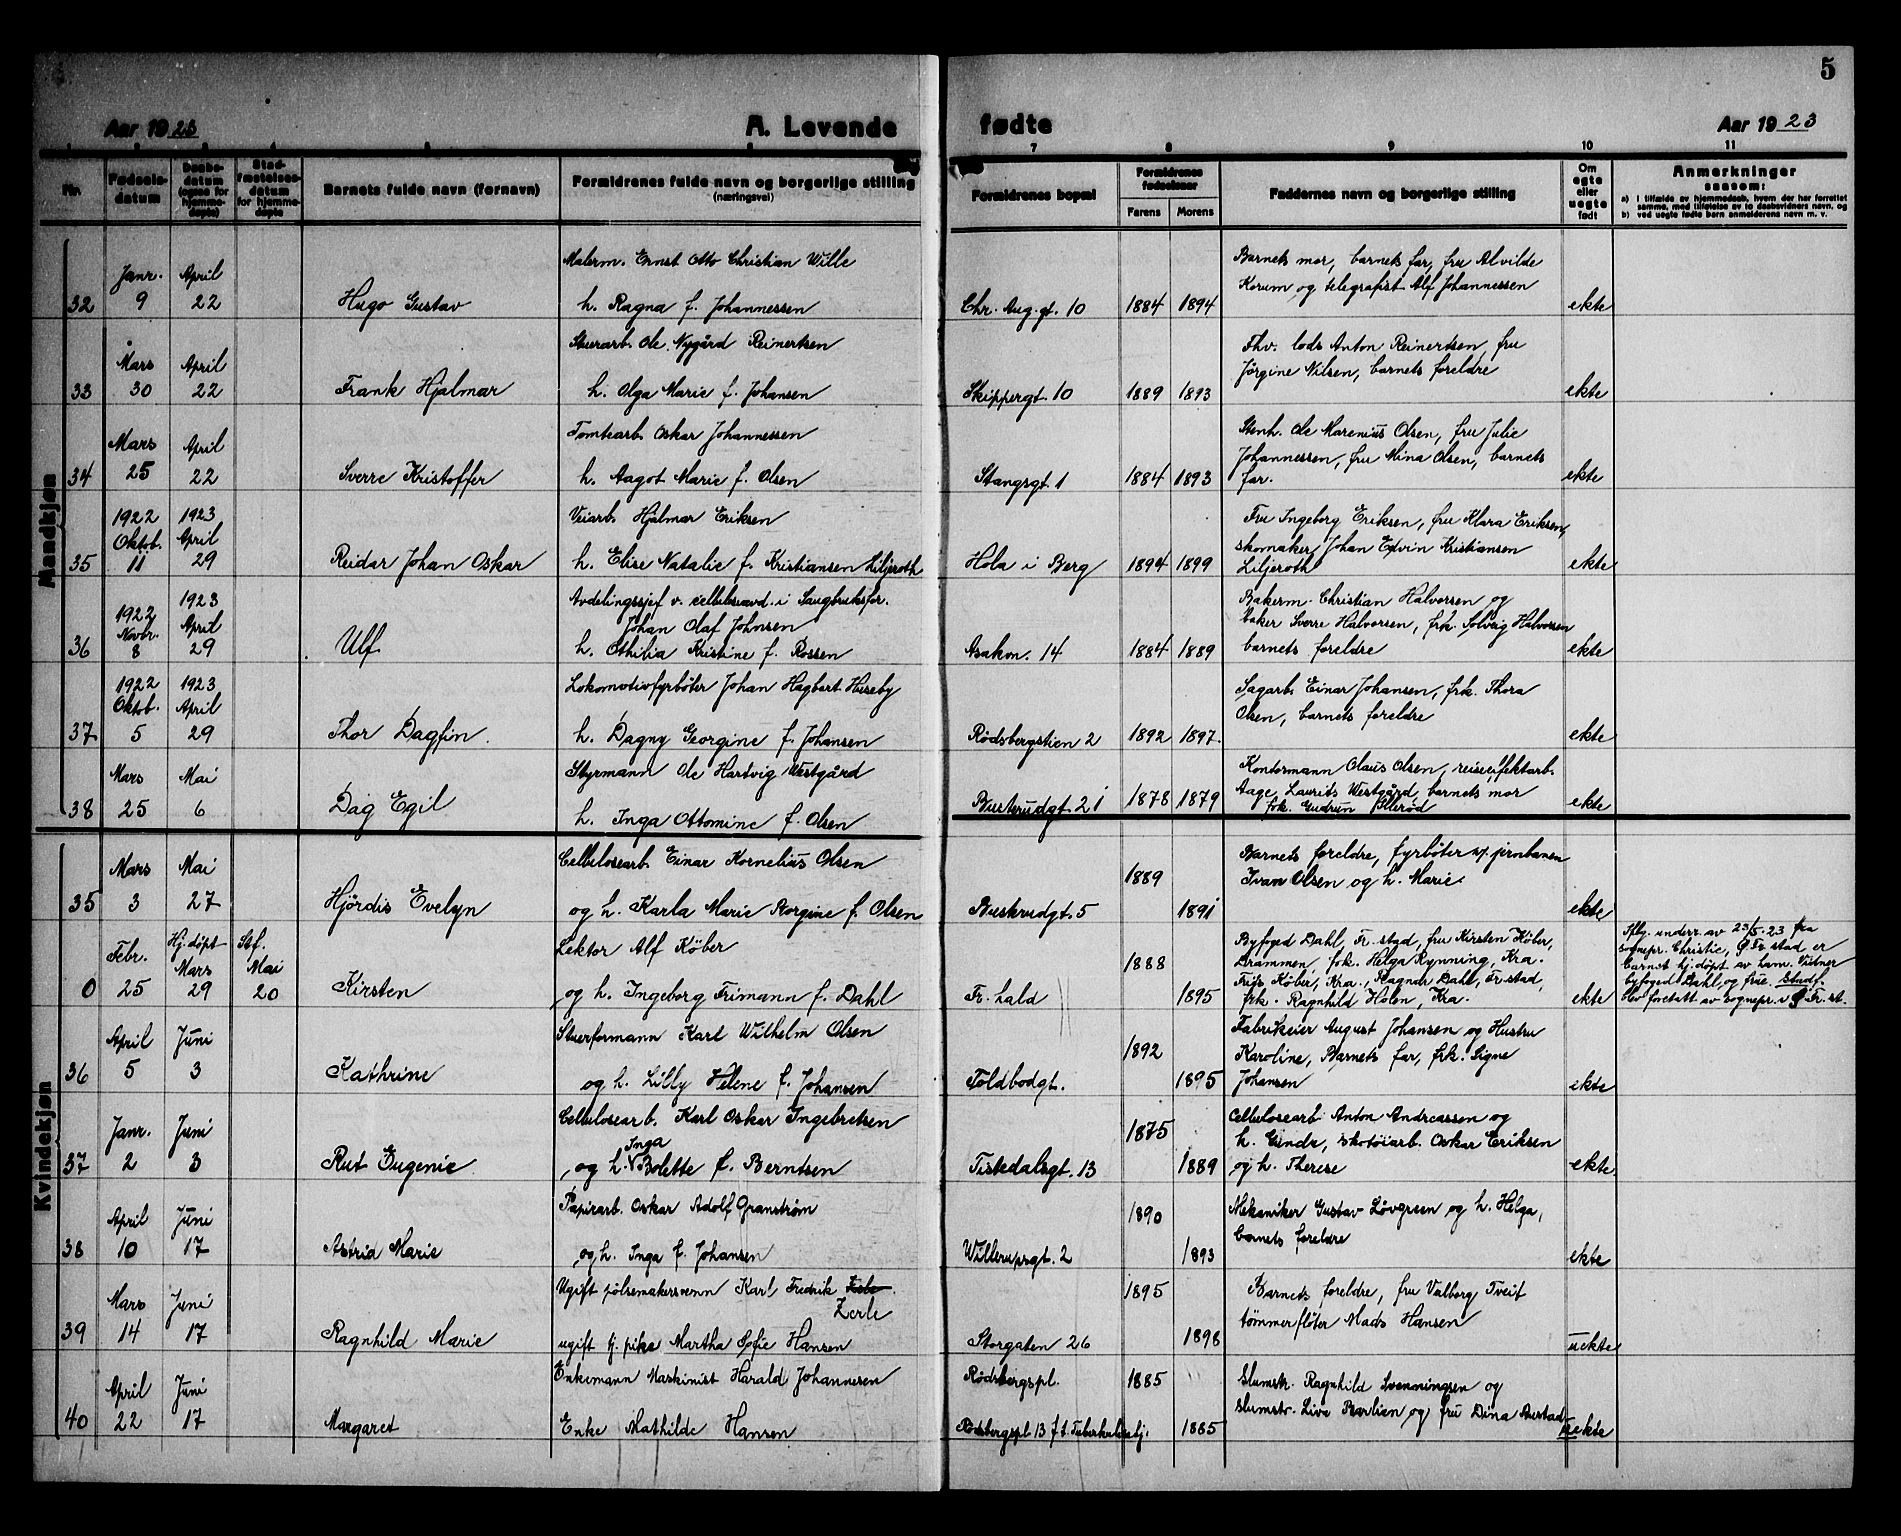 5
Aar 1923
A. Levende
fødte
Aar 1923
7 8 9 10 11
Nr.
Fødselsdatum
Daabsdatum (ogsaa for hjemmedøpte)
Stadfæstelsesdatum for hjemmedøpte
Barnets fulde navn (fornavn)
Forældrenes fulde navn og borgerlige stilling
(næringsvei)
Forældrenes bopæl
Forældrenes fødselsaar
Farens Morens
Faddernes navn og borgerlige stilling
Om egte eller uegte født
Anmerkninger
saasom:
a) I tilfælde av hjemmedaab, hvem der har forrettet
samme, med tilføielse av to daabsvidners navn, og
b) ved uegte fødte barn anmelderens navn m. v.
Mandkjøn
32
Janr. 9
April 22
Hugo Gustav
Malerm. Ernst Otto Christian Wille
h. Ragna f. Johannessen
Chr. Aug. gt. 10
1884 1894
Barnets mor, barnets far, fru Alvilde
Korum og telegrafist Alf Johannessen
ekte
33
Mars 30
April 22
Frank Hjalmar
Stuerarb. Ole Nygård Reinertsen
h. Olga Marie f. Johansen
Skippergt. 10
1889 1893
Fhv. lods Anton Reinertsen, fru
Jörgine Nilsen, barnets foreldre
ekte
34
Mars 25
April 22
Sverre Kristoffer
Tomtearb. Oskar Johannessen
h. Aagot Marie f. Olsen
Stangsgt. 1
1884 1893
Stenh. Ole Marenius Olsen, fru Julie
Johannessen, fru Mina Olsen, barnets
far.
ekte
35
1922 Oktob. 11
1923 April 29
Reidar Johan Oskar
Veiarb. Hjalmar Eriksen
h. Elise Natalie f. Kristiansen Liljeroth
Hola i Berg
1894 1899
Fru Ingeborg Eriksen, fru Klara Eriksen,
skomaker Johan Edvin Kristiansen
Liljeroth
ekte
36
1922 Novbr. 8
1923 April 29
Ulf
Avdelingssjef v. celluloseavd. i Saugbruksfor.
Johan Olaf Johnsen
h. Othilia Kristine f. Rossen
Asakon. 14
1884 1889
Bakerm. Christian Halvorsen og
baker Sverre Halvorsen, frk. Solveig Halvorsen
barnets foreldre
ekte
37
1922 Oktob. 5
1923 April 29
Thor Dagfin.
Lokomotivfyrbøter Johan Hagbart Huseby
h. Dagny Georgine f. Johansen
Rødsbergstien 2
1892 1897.
Sagarb. Einar Johansen, frk. Thora
Olsen, barnets foreldre
ekte
38
Mars 25
Mai 6
Dag Egil
Styrmann Ole Hartvig Westgård
h. Inga Ottomine f. Olsen
Busterudgt. 21
1878 1879
Kontormann Olaus Olsen, reiseeffektarb.
Aage Laurits Westgård, barnets mor
frk. Gudrun Ellerød
ekte
Kvindekjøn
35
Mars 3
Mai 27
Hjördis Evelyn
Cellulosearb. Einar Kornelius Olsen
og h. Karla Marie Borgine f. Olsen
Buskrudgt. 5
1889 1891
Barnets foreldre, fyrbøter v. jernbanen
Ivan Olsen og h. Marie.
ekte
0
Febr. 25
Hj. døpt Mars 29
Stf. Mai 20
Kirsten
Lektor Alf Köber
og h. Ingeborg Frimann f. Dahl
Fr. hald
1888 1895
Byfoged Dahl, Fr. stad, fru Kirsten Köber,
Drammen, frk. Helga Rynning, Kra.
Friis Köber, Kra., Ragndr Dahl, Fr. stad,
frk. Ragnhild Holen, Kra.
ekte
Iflg. underr. av 23/5-23 fra
sognepr. Christie, G. Fr. stad er
barnet hj. døpt av ham. Vidner
byfoged Dahl og frue. Stadf.
blev foretatt av sognepr. i G. Fr. st.
36
April 5
Juni 3
Kathrine
Stuerformann Karl Wilhelm Olsen
og h. Lilly Helene f. Johansen
Toldbodgt.
1892 1895
Fabrikeier August Johansen og Hustru
Karoline, Barnets far, frk. Signe
Johansen
ekte
37
Janr. 2
Juni 3
Rut Eugenie
Cellulosearb. Karl Oskar Ingebretsen
og h. Inga Bolette f. Berntsen
Tistedalsgt. 13
1875 1889
Cellulosearb Anton Andreassen og
h. Gunda, skotöiarb. Oskar Eriksen
og h. Therese
ekte
38
April 10
Juni 17
Astrid Marie
Papirarb. Oskar Adolf Granstrøm
og h. Inga f. Johansen
Willerupsgt. 2
1890 1893
Mekaniker Gustav Løvgreen og h. Helga,
barnets foreldre
ekte
39
Mars 14
Juni 17
Ragnhild Marie
Ugift pölsemakersvenn Karl Fredrik
Zerle
ugift tj. pike Martha Sofie Hansen
Storgaten 26
1895 1898
Barnets foreldre, fru Valborg Tveit
tömmerflöter Mads Hansen
uekte
40
April 22
Juni 17
Margaret
Enkemann Maskinist Harald Johannesen
Enke Mathilde Hansen
Rødsbergspl.
Rødsbergspl 13 f.t. Tuberkulosehj.
1885 1885
Slumstr. Ragnhild Svenningsen og
slumstr. Live Barlien og fru Dina Austad
uekte